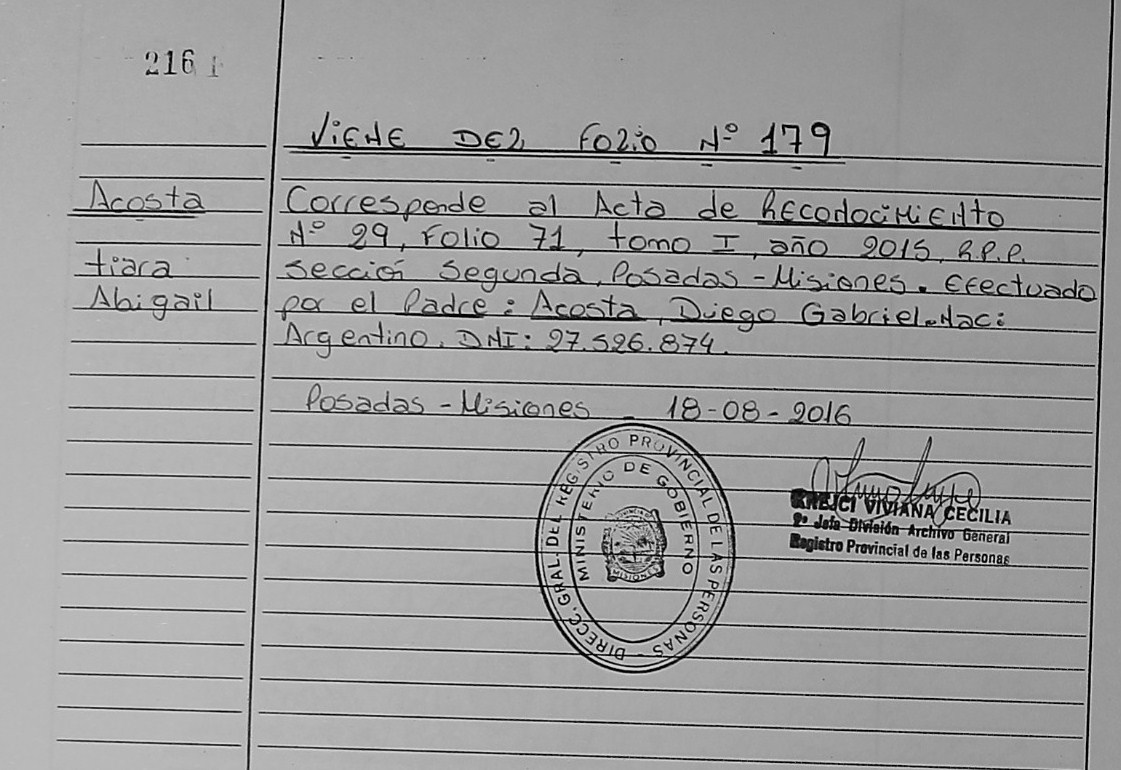 216
VIENE DEL FOLIO Nº 179
Acosta
Tiara
Abigail
Corresponde al Acta de Reconocimiento
Nº 29, Folio 71, tomo I, año 2015, R.P.P.
sección segunda, Posadas - Misiones. Efectuado
por el Padre: Acosta, Diego Gabriel. Nac:
Argentino. DNI: 27.526.874.
Posadas - Misiones - 18-08-2016
DIRECC. GRAL. DEL REGISTRO PROVINCIAL DE LAS PERSONAS -
MINISTERIO DE GOBIERNO
MISIONES
KREJCI VIVIANA CECILIA
2º Jefa División Archivo General
Registro Provincial de las Personas